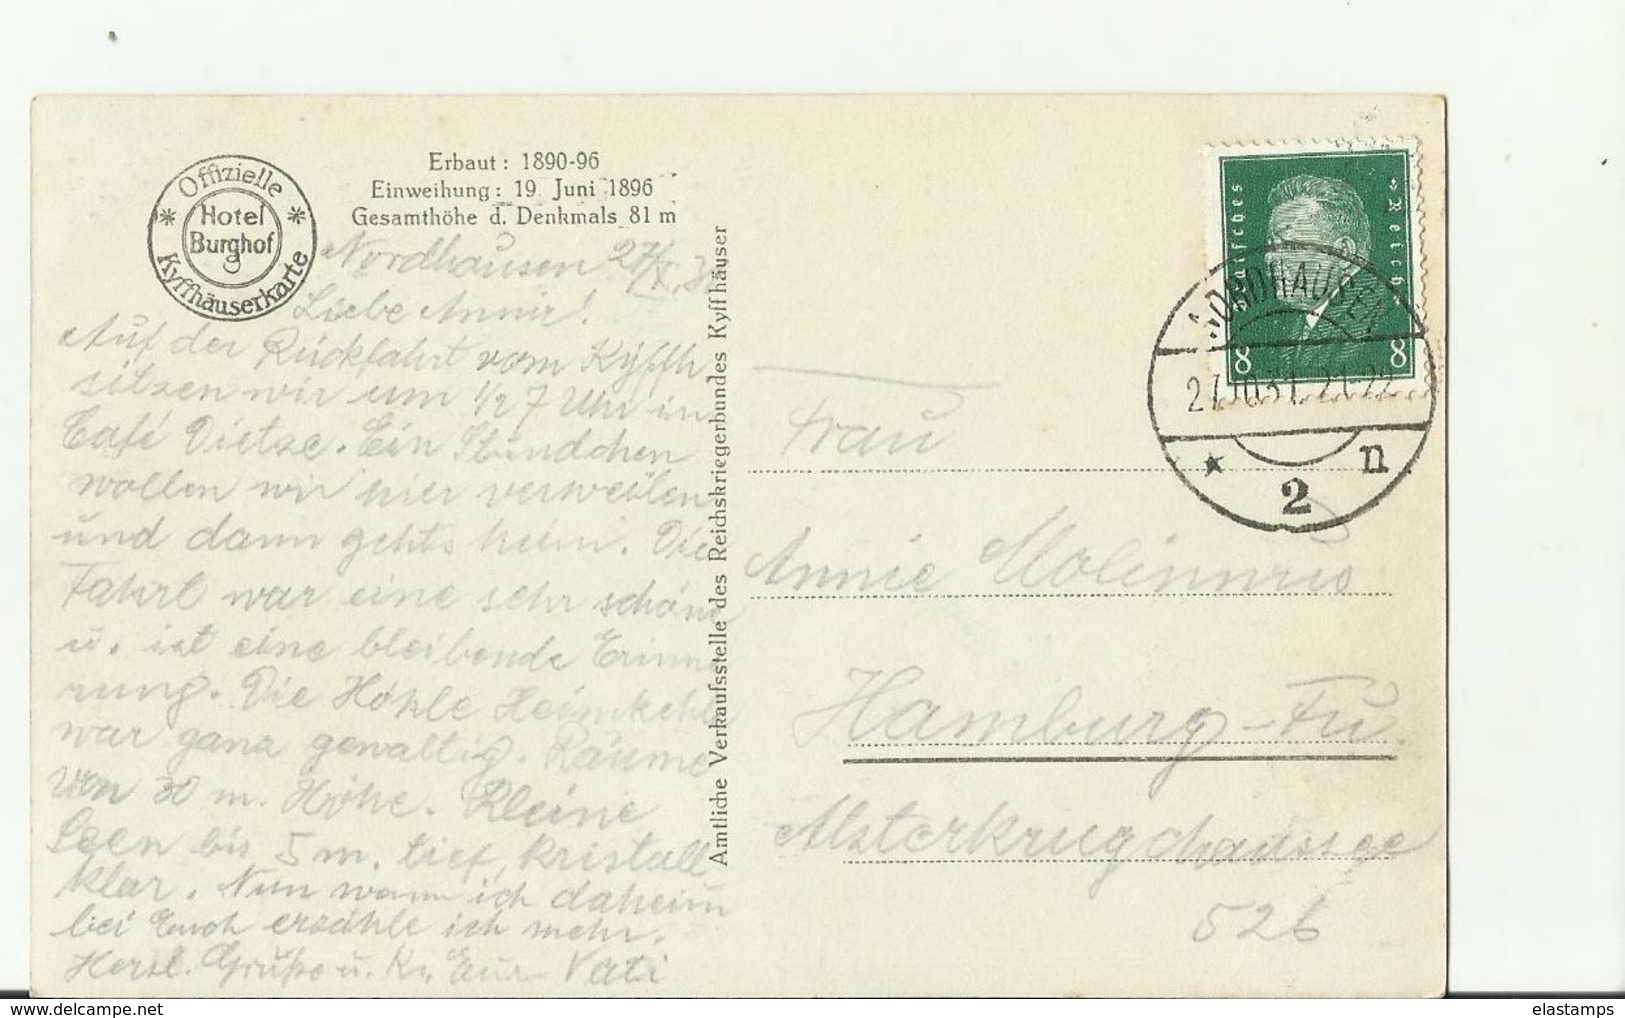 Offizielle
Hotel
Burghof
Kyffhäuserkarte
Erbaut: 1890-96
Einweihung: 19. Juni 1896
Gesamthöhe d. Denkmals 81 m
Nordhausen 27/X.31
Liebe Annie!
Auf der Rückfahrt vom Kyffh
sitzen wir um 1/2 7 Uhr im
Café Dietze. Ein Stündchen
wollen wir hier verweilen
und dann gehts heim. Die
Fahrt war eine sehr schöne
u. ist eine bleibende Erinne
rung. Die Höhle Heimkehle
war ganz gewaltig. Räume
von 30 m. Höhe. Kleine
Seen bis 5 m. tief, kristall
klar. Nun wann ich daheim
bei Euch erzähle ich mehr.
Herzl. Grüße u. Kr. Eur Vati
Amtliche Verkaufsstelle des Reichskriegerbundes Kyffhäuser
Deutsches Reich
8 8
NORDHAUSEN
27.10.31. 21-22
* 2 n
Frau
Annie Molinnus
Hamburg-Fu.
Alsterkrugchaussee
526
elastamps